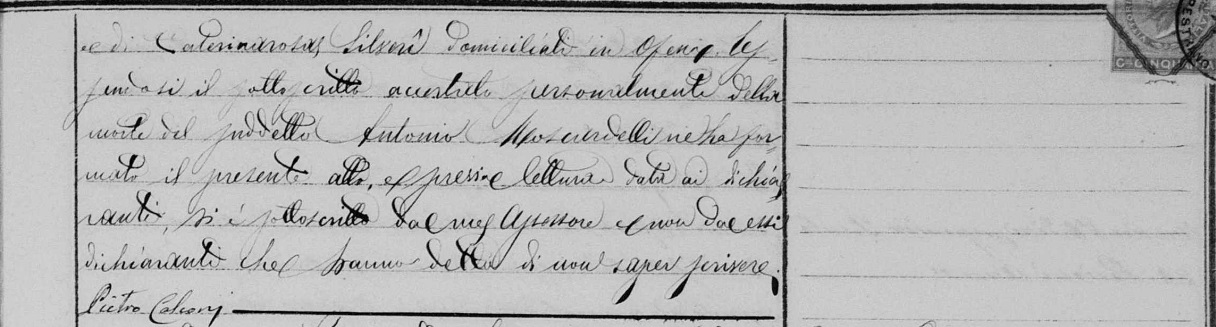 e di Caterinarosa Silveri domiciliati in Ofena. Es-
sendosi il sottoscritto accertato personalmente della
morte del suddetto Antonio Mosciardelli ne ha for-
mato il presente atto, e pressa lettura data ai dichia-
ranti, si è sottoscritto da me Assessore e non da essi
dichiaranti che hanno detto di non saper scrivere.
Pietro